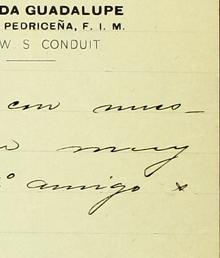 DA GUADALUPE
PEDRICEÑA, F. I. M.
W S CONDUIT
con nues-
muy
amigo s